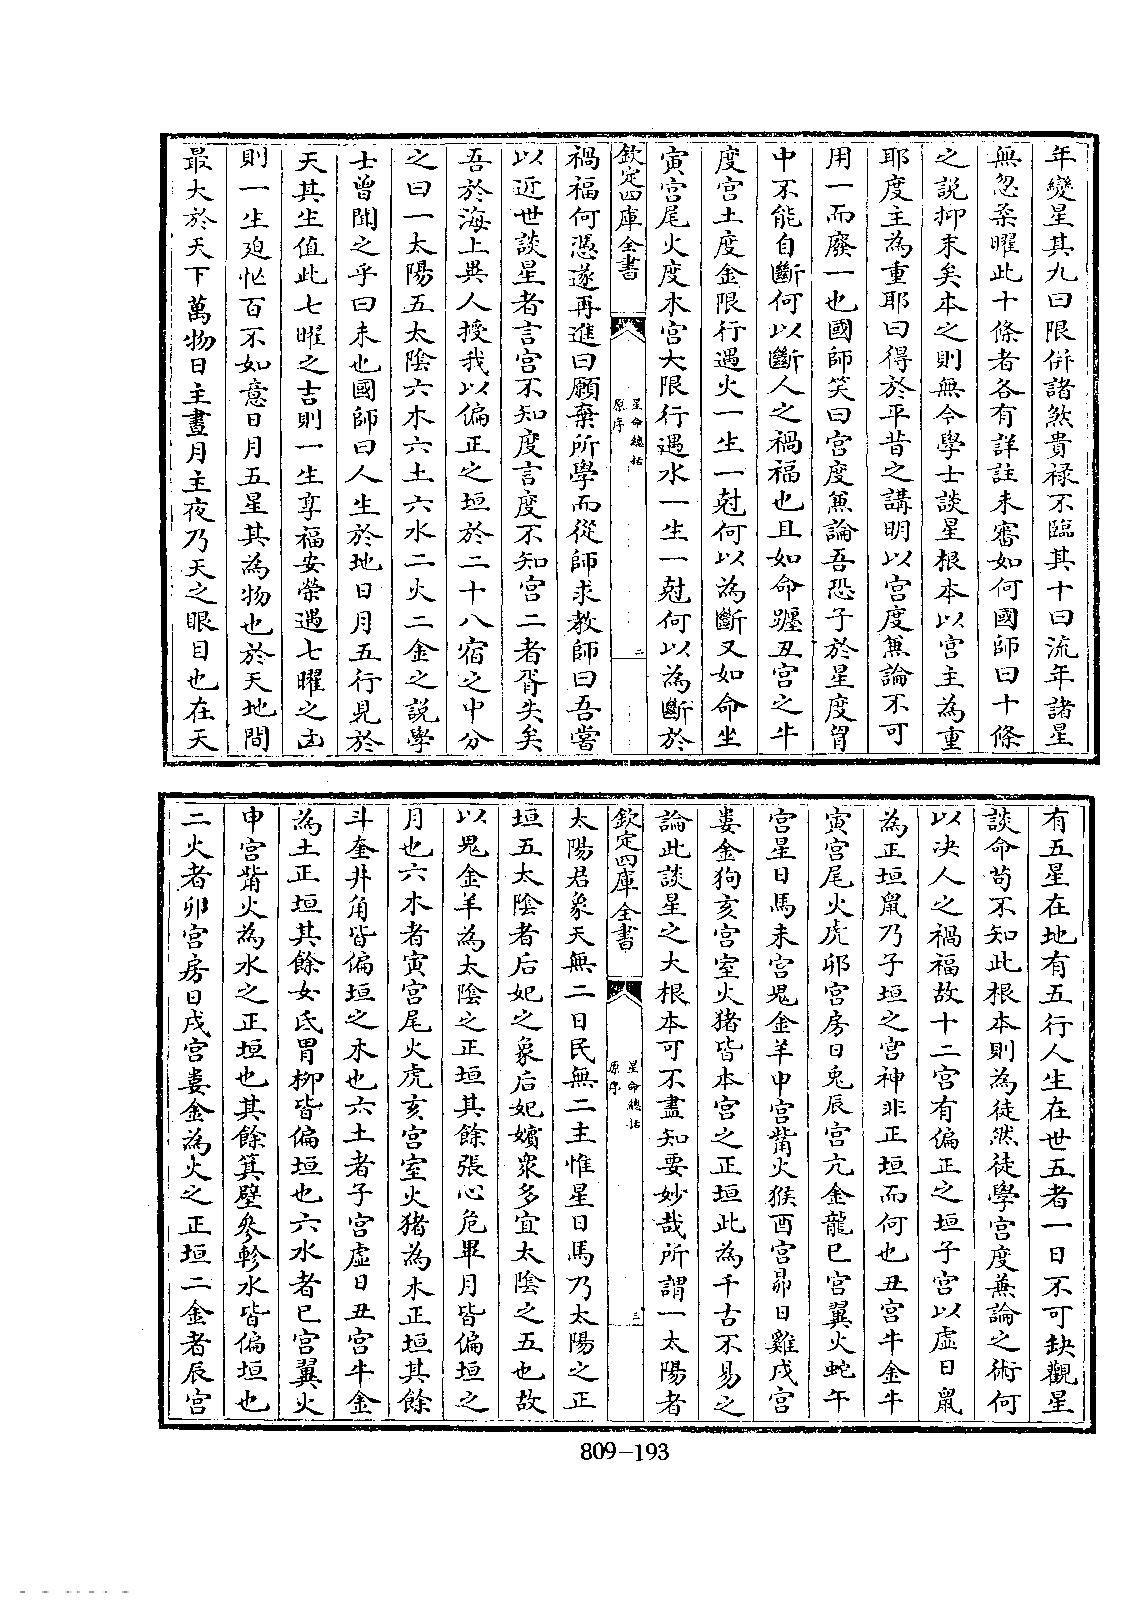 年變星其九曰限併諸煞貴祿不臨其十曰流年諸星
無忽柔曜此十條者各有詳註未審如何國師曰十條
之說抑末矣本之則無今學士談星根本以宫主為重
耶度主為重耶曰得於平昔之講明以宫度兼論不可
用一而廢一也國師笑曰宫度兼論吾恐子於星度胷
中不能自斷何以斷人之禍福也且如命躔丑宫之牛
度宫土度金限行遇火一生一尅何以為斷又如命坐
寅宫尾火度木宫大限行遇水一生一尅何以為斷於
欽定四庫全書
星命總括
原序
二
禍福何憑遂再進曰願棄所學而從師求教師曰吾嘗
以近世談星者言宫不知度言度不知宫二者胥失矣
吾於海上異人授我以偏正之垣於二十八宿之中分
之曰一太陽五太陰六木六土六水二火二金之說學
士曾聞之乎曰未也國師曰人生於地日月五行見於
天其生值此七曜之吉則一生享福安榮遇七曜之凶
則一生廹忙百不如意日月五星其為物也於天地間
最大於天下萬物日主晝月主夜乃天之眼目也在天
有五星在地有五行人生在世五者一日不可缺觀星
談命苟不知此根本則為徒然徒學宫度兼論之術何
以决人之禍福故十二宫有偏正之垣子宫以虛日鼠
為正垣鼠乃子垣之宫神非正垣而何也丑宫牛金牛
寅宫尾火虎卯宫房日兎辰宫亢金龍巳宫翼火蛇午
宫星日馬未宫鬼金羊申宫觜火猴酉宫昴日雞戌宫
婁金狗亥宫室火猪皆本宫之正垣此為千古不易之
論此談星之大根本可不盡知要妙哉所謂一太陽者
欽定四庫全書
星命總括
原序
三
太陽君象天無二日民無二主惟星日馬乃太陽之正
垣五太陰者后妃之象后妃嬪衆多宜太陰之五也故
以鬼金羊為太陰之正垣其餘張心危畢月皆偏垣之
月也六木者寅宫尾火虎亥宫室火猪為木正垣其餘
斗奎井角皆偏垣之木也六土者子宫虛日丑宫牛金
為土正垣其餘女氐胃柳皆偏垣也六水者巳宫翼火
申宫觜火為水之正垣也其餘箕壁參軫水皆偏垣也
二火者卯宫房日戌宫婁金為火之正垣二金者辰宫
809-193